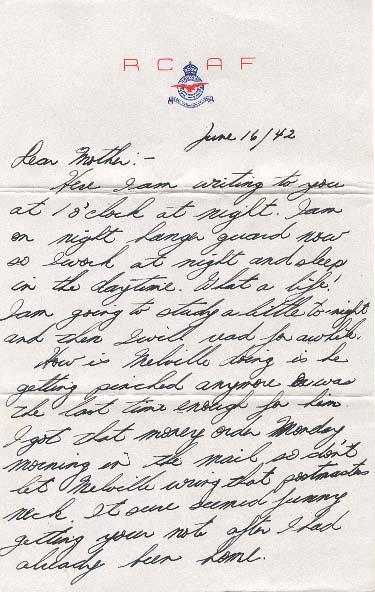 R C A F
June 16/42
Dear Mother:-
Here I am writing to you
at 1 o'clock at night. I am
on night hanger guard now
so I work at night and sleep
in the daytime. What a life!
I am going to study a little to-night
and then I will read for awhile.
How is Melville doing is he
getting pinched anymore or was
the last time enough for him.
I got that money order Monday
morning in the mail so don't
let Melville wring that postmasters
neck. It sure seemed funny
getting your note after I had
already been home.